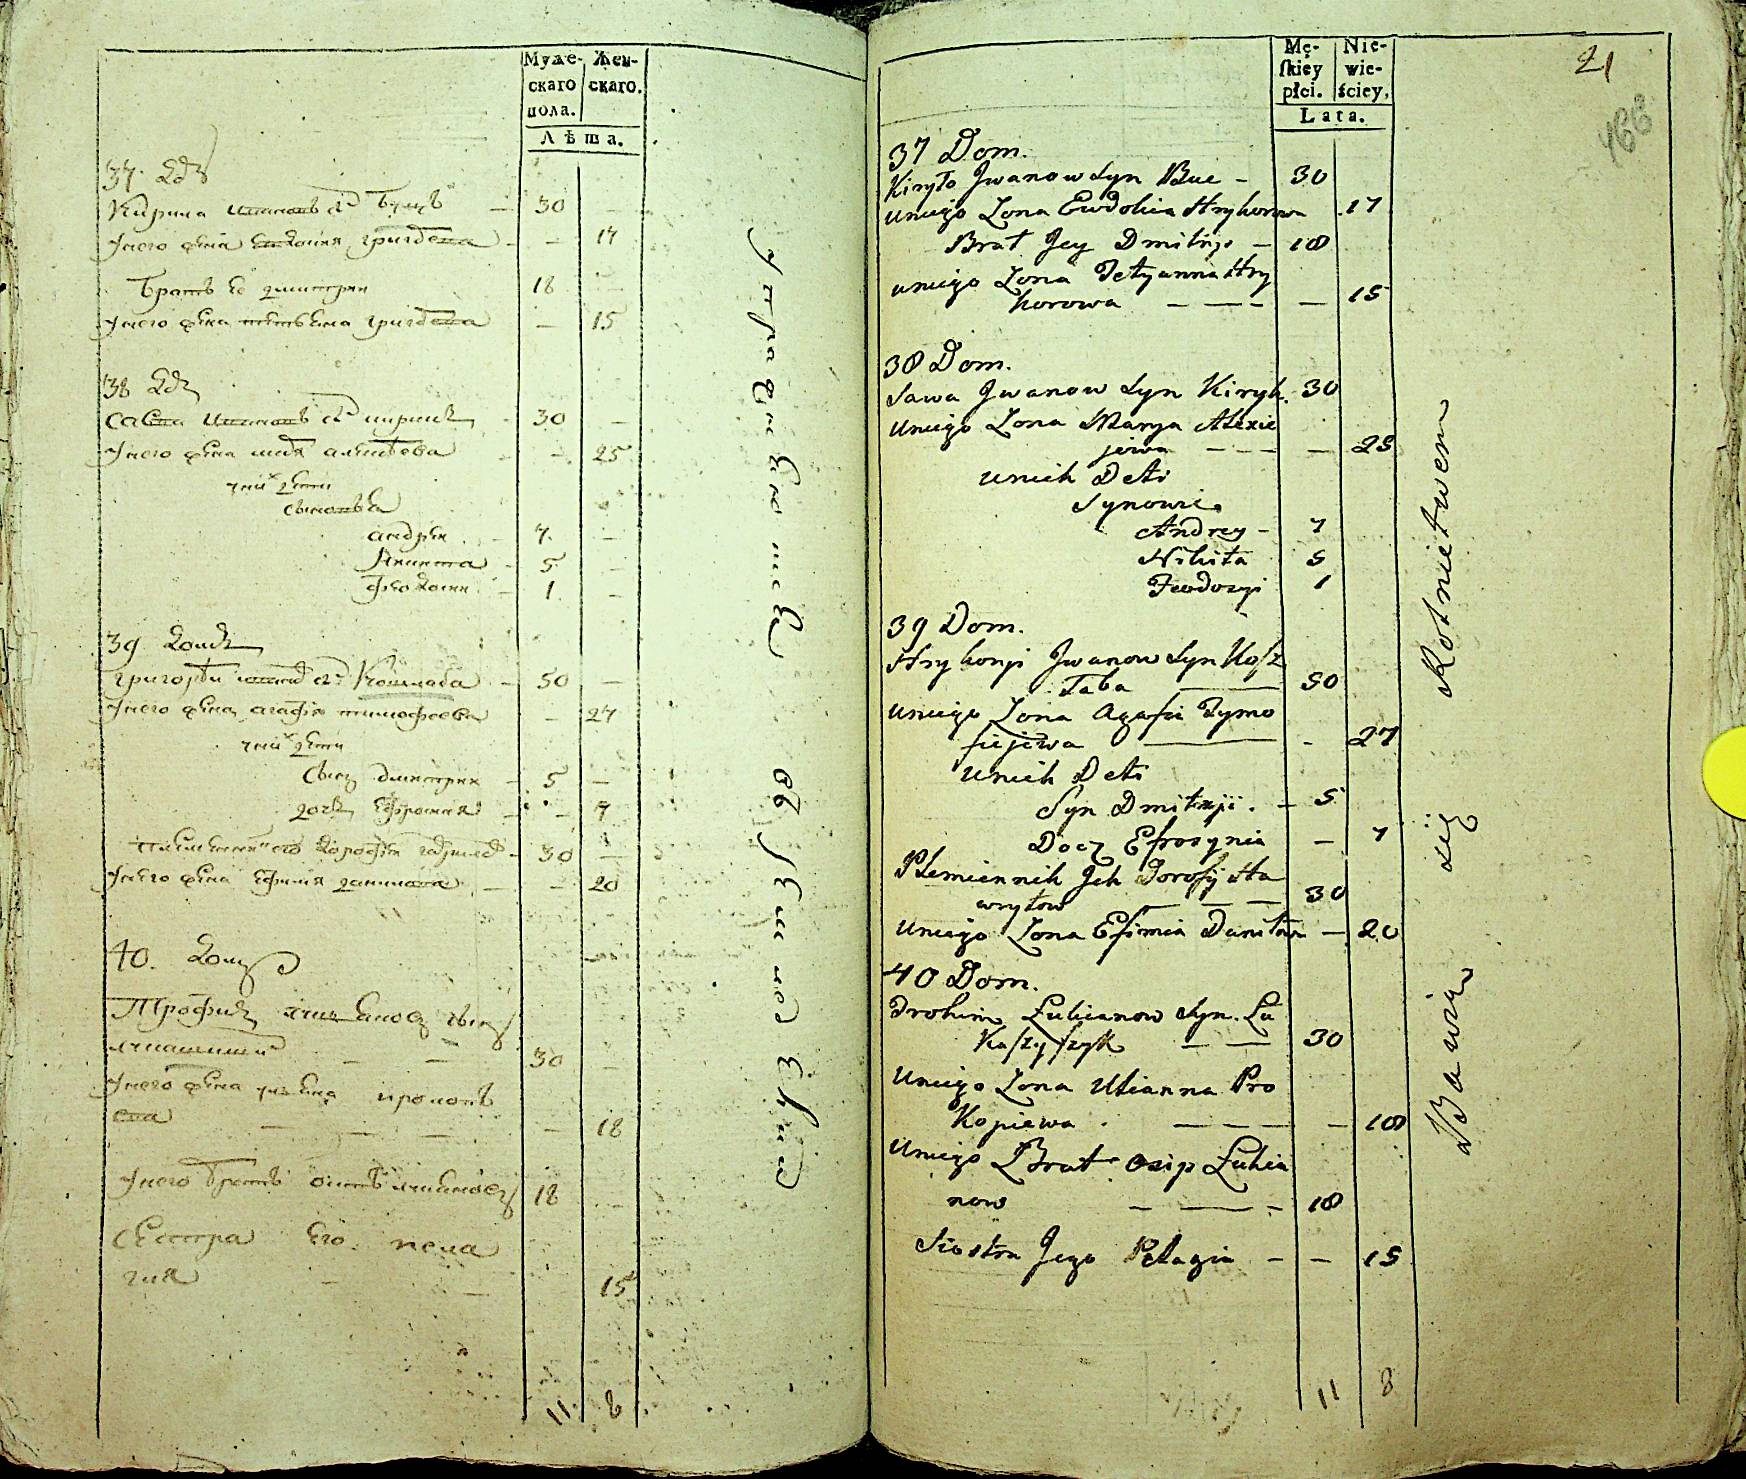 Муже-
скаго
пола.
Жен-
скаго.
Лѣта.
37.
Кирила Ивановъ с. Буцъ — 30 —
У него жена Евдокия Григорева — — 17
Братъ ее Дмитрий 18 —
У него жена Татьяна Григорева — 15
38
Сава Ивановъ с. Кирикъ 30 —
У него жена Алексеева — 25
у них дети
сыновья
Андрей 7 —
Никита 5 —
Феодосий 1 —
39 Домъ
Григорей Иванов с. Кошлаба — 50 —
У него жена Агафия Тимофеева — 27
у них дети
сынъ Дмитрий — 5 —
дочь Ефросиния — — 7
племенник его Дорофей Гаврилов — 30 —
У него жена Ефимия Данилова — — 20
40. Домъ
Трофимъ Лукьяновъ сынъ
— — 30 —
У него жена Ульяна Прокопь
ева — — — — 18
У него братъ Осипъ Лукьяновъ 18 —
Сестра его Пела
гия — — 15
11 8
упражняются
21
166
Mę-
skiey
płci.
Nie-
wie-
ściey.
Lata.
37 Dom.
Kiryło Jwanow Syn Buc — 30
uniego Zona Ewdokia Hryhorowa 17
Brat Jey Dmitryi — 18
uniego Zona Tetyanna Hry
horowa — — — — 15
38 Dom.
Sawa Jwanow Syn Kiryk. 30
Uniego Zona Marya Alexie
jewa — — — — 25
unich Deti
Synowie
Andrey — 7
Nikita 5
Feodozyi 1
39 Dom.
Hryhoryi Jwanow Syn Kosz
łaba — 50
uniego Zona Agafia Tymo
fiejewa — - 27
unich Deti
Syn Dmitryi. — 5
Docz Efrosynia — 7
Plemiennik Jch Dorofij Ha
wryłow — — — 30
uniego Zona Efimia Daniłowa — 20
40 Dom.
Trohim Łukianow Syn. Łu
Kaszyszyk — — 30
Uniego Zona Ulianna Pro
Kopiewa. — — — — 18
Uniego Brat Osip Łukia
now — — - 18
Siostra Jego Pelagia — — 15
11 8
Bawią się Rolnictwem